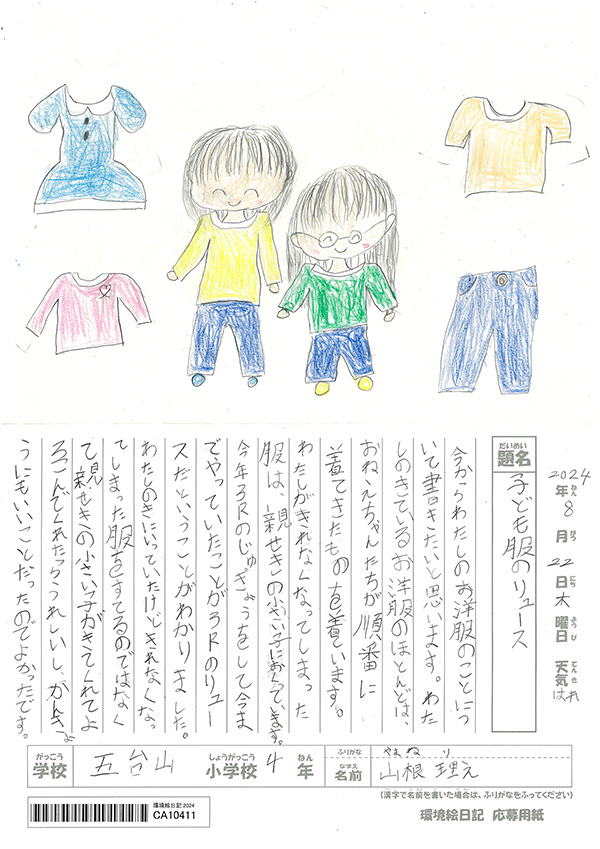 2024年8月22日木曜日 天気はれ
ねん がつ にち ようび てんき
だいめい
題名
子ども服のリュース
今からわたしのお洋服のことにつ
いて書きたいと思います。わた
しのきているお洋服のほとんどは、
おねえちゃんたちが順番に
着てきたものを着ています。
わたしがきれなくなってしまった
服は、親せきの小さい子においています。
今年3Rのじゅぎょうをして今ま
でやっていたことが3Rのリュー
スだということがわかりました。
わたしのきにいっていたけどきれなくなっ
てしまった服をすてるのではなく
て親せきの小さい子がきてくれてよ
ろこんでくれたらうれしいし、かんきょ
うにもいいことだったのでよかったです。
がっこう しょうがっこう ねん
学校 五台山 小学校 4年
ふりがな やまね り
なまえ
名前 山根 理え
(漢字で名前を書いた場合は、ふりがなをふってください)
環境絵日記 2024
CA10411
環境絵日記 応募用紙